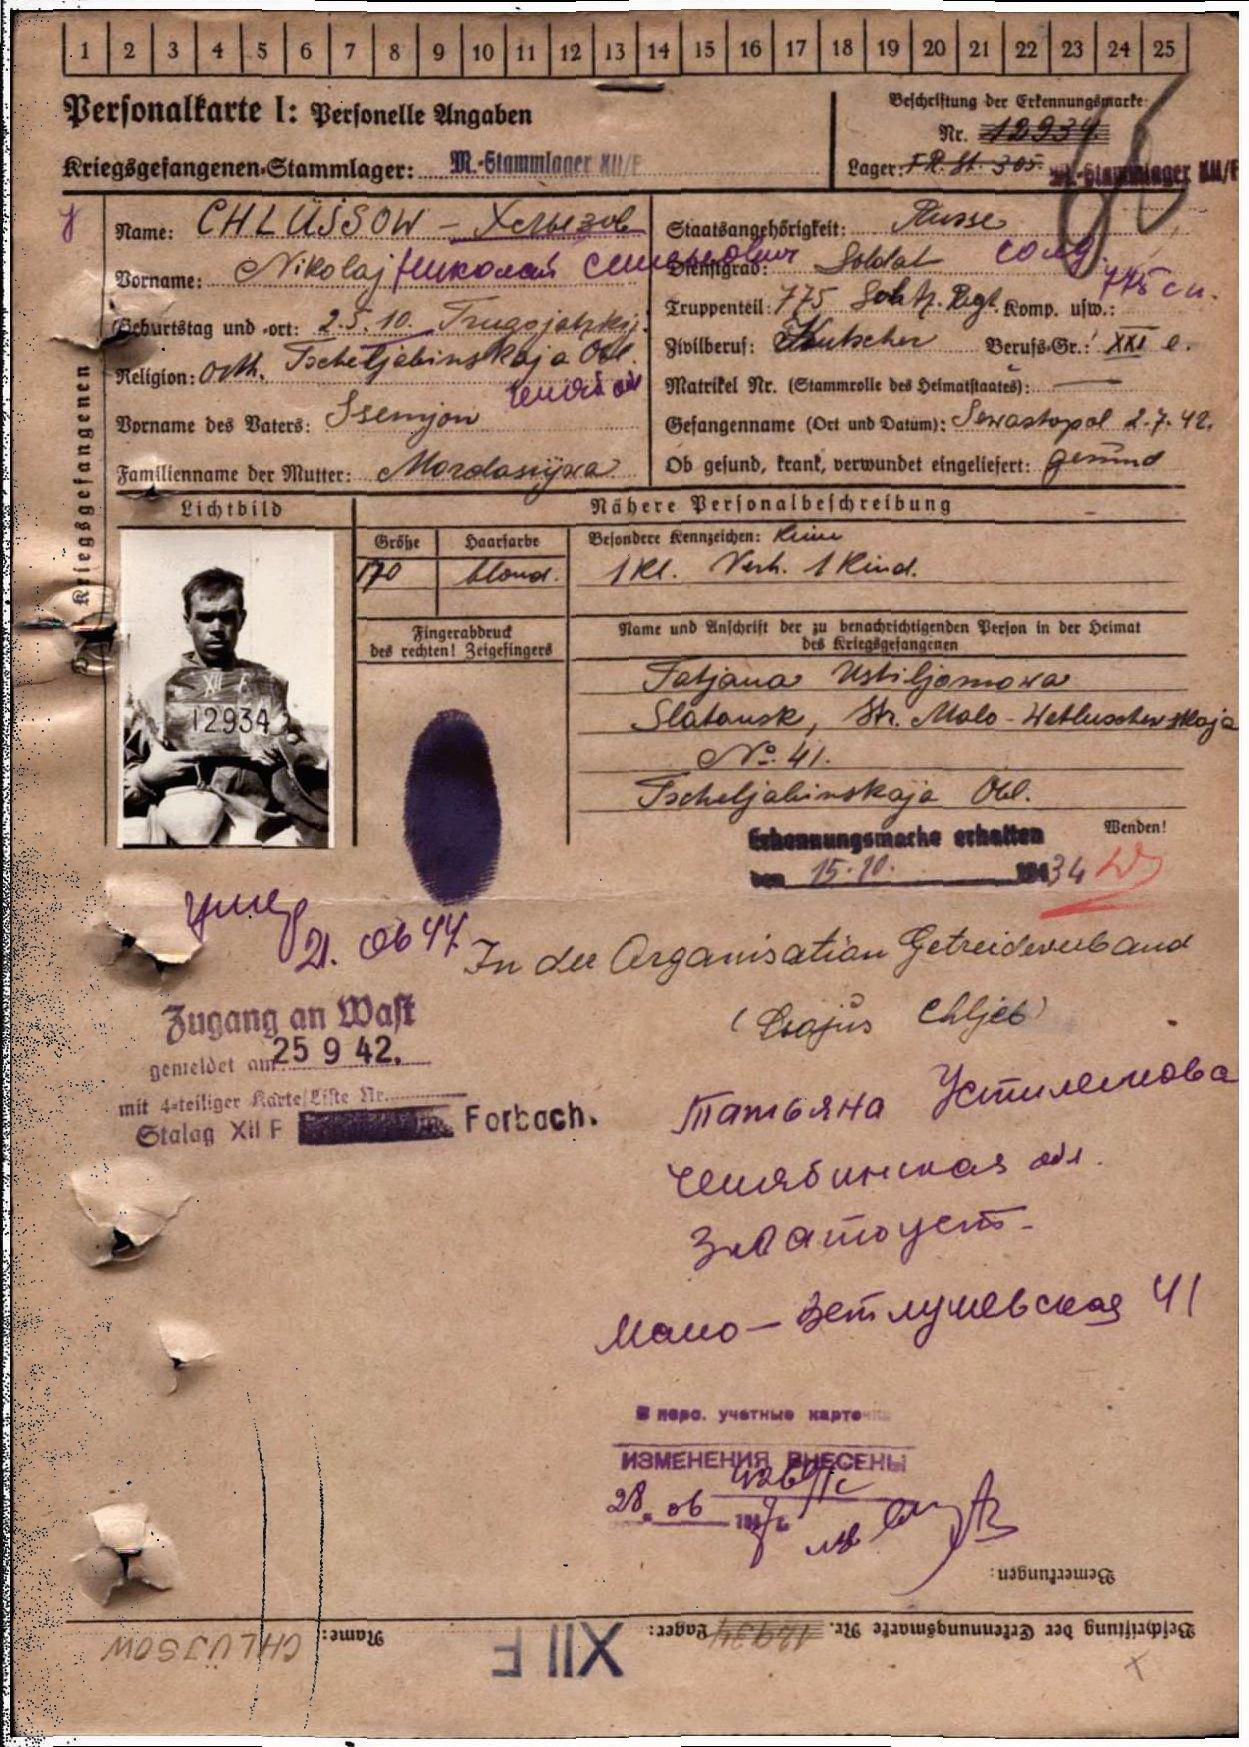 1 2 3 4 5 6 7 8 9 10 11 12 13 14 15 16 17 18 19 20 21 22 23 24 25
Personalkarte I: Personelle Angaben
Kriegsgefangenen-Stammlager: M.-Stammlager XII/F
Beschriftung der Erkennungsmarke
Nr. 12934
Lager: FR. St. 305 M.-Stammlager XII/F
Kriegsgefangenen
Name: CHLÜSSOW – Хлызов
Vorname: Nikolaj Николай Семенович
Geburtstag und -ort: 2.5.10.
Religion: Orth. Tscheljabinskaja Obl.
Vorname des Vaters: Ssemjon
Familienname der Mutter:
Staatsangehörigkeit: Russe
Dienstgrad: Soldat солд.
Truppenteil: 775 Schtz. Regt. Komp. usw.: 775 сп.
Zivilberuf: Kutscher Berufs-Gr.: XXI e.
Matrikel Nr. (Stammrolle des Heimatstaates): —
Gefangenname (Ort und Datum): Sewastopol 2.7.42.
Ob gesund, krank, verwundet eingeliefert: gesund
Lichtbild
Nähere Personalbeschreibung
Größe Haarfarbe Besondere Kennzeichen: keine
170 blond. 1 Kl. Verh. 1 Kind.
Fingerabdruck
des rechten! Zeigefingers
Name und Anschrift der zu benachrichtigenden Person in der Heimat
des Kriegsgefangenen
Tatjana Ustiljomowa
Slatousk, Str. Malo-Wetluschewskaja
No. 41.
Tscheljabinskaja Obl.
XII F
12934
Erkennungsmarke erhalten
den 15.10.
Wenden!
умер
21. 06 44
In der Organisation Getreideverband
(Ssojus Chljeb)
Zugang an Wast
gemeldet am 25 9 42.
mit 4-teiliger Karte/Liste Nr.
Stalag XII F Forbach.
Татьяна Устилемова
Челябинская обл.
Златоуст
Мало-Ветлушевская 41
В перс. учетные карточки
ИЗМЕНЕНИЯ ВНЕСЕНЫ
28. 06
Bemerkungen:
Beschriftung der Erkennungsmarke Nr. 12934 Lager: XII F Name: CHLÜSSOW